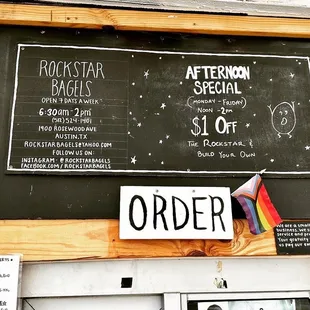 ROCKSTAR
BAGELS
OPEN 7 DAYS A WEEK
6:30 am - 2pm
(512) 524-1160
1900 ROSEWOOD AVE
AUSTIN, TX
ROCKSTARBAGELS@YAHOO.COM
FOLLOW US ON
INSTAGRAM: @ROCKSTARBAGELS
FACEBOOK.COM/ROCKSTARBAGELS
AFTERNOON
SPECIAL
MONDAY - FRIDAY
NOON - 2PM
$1 OFF
THE ROCKSTAR &
BUILD YOUR OWN
ORDER
We are a small
business. We can't
pay us
Your gratuity